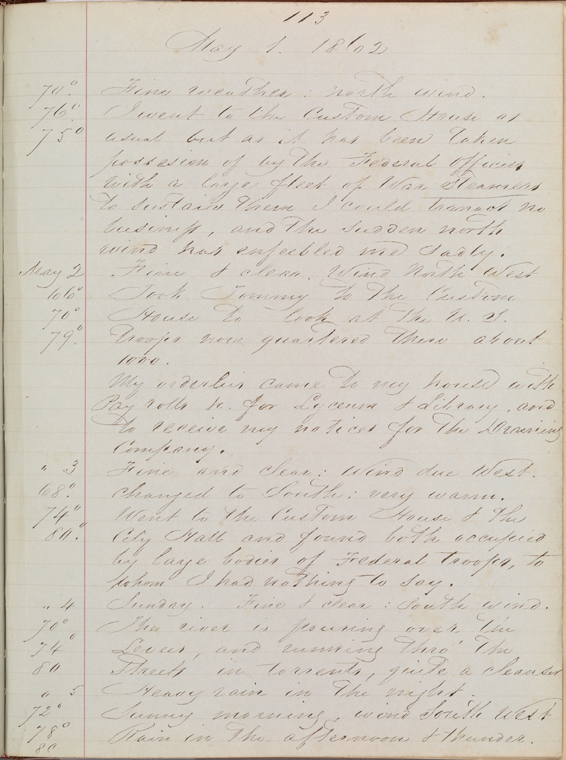 113
May 1. 1862
70° Fine weather: north wind.
76° I went to the Custom House as
75° usual but as it has been taken
possesion of by the Federal Officers
with a large fleet of War Steamers
to sustain them I could transact no
business, and the sudden north
wind has enfeebled me sadly.
May 2 Fine & clear. Wind North West
66° Took Tommy to the Custom
70° House to look at the U. S.
79° Troops now quartered there about
1000.
My orderlies came to my house with
Pay rolls &c. for Lyceum & Library, and
to receive my notices for the Draining
Company.
" 3 Fine and clear: Wind due West.
68° changed to South: very warm.
74° Went to the Custom House & the
80° City Hall and found both occupied
by large bodies of Federal troops, to
whom I had nothing to say.
" 4 Sunday. Fine & clear: South wind.
70° The river is pouring over the
74° Levee, and running thro' the
80 Streets in torrents, quite a cleanser
" 5 Heavy rain in the night.
72° Sunny morning, wind South West
78° Rain in the afternoon & thunder.
80